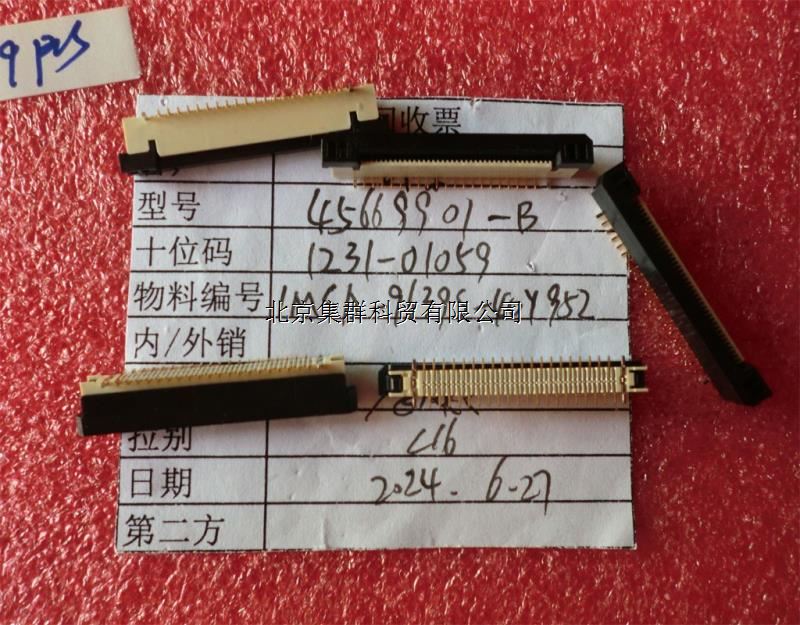 9 PCS
回收票
型号 45669901-B
十位码 1231-01059
物料编号
北京集群科贸有限公司
内/外销
拉别 C16
日期 2024. 6-27
第二方